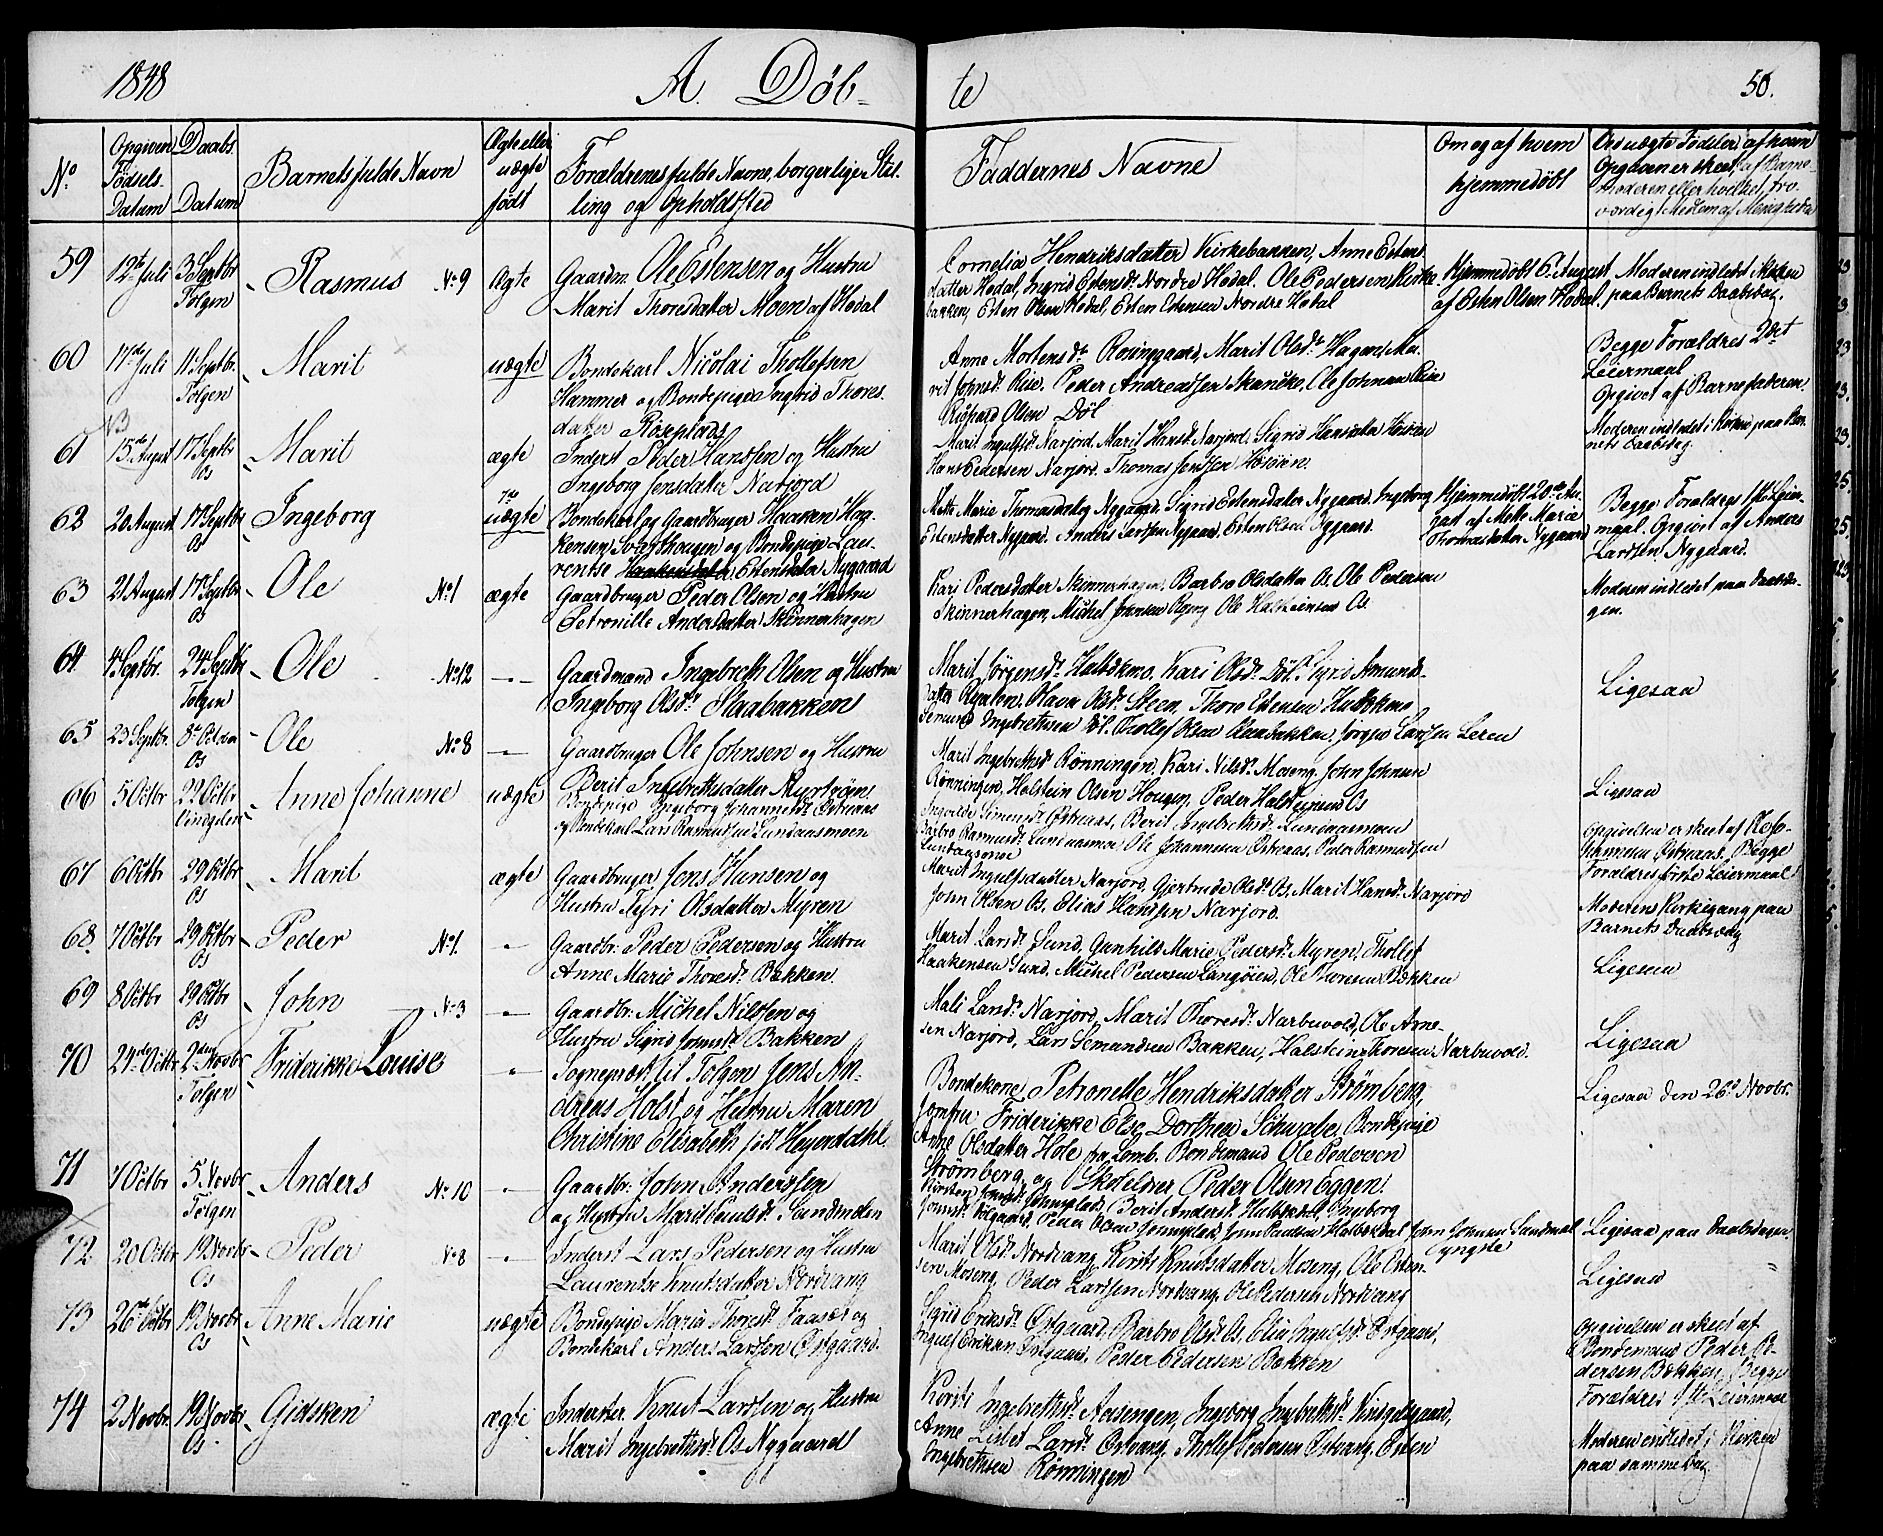 1848
A. Døb-
te
50.
No
Opgiven
Fødsels-
Datum
Daabs
Datum
Barnets fulde Navn
Ægte eller
uægte
født
Forældrenes fulde Navne, borgerlige Stil-
ling og Opholdssted
Faddernes Navne
Om og af hvem
hjemmedøbt
Ved uægte Fødsler, af hvem
Opgaven er skeet, af Barne-
moderen eller hvilket tro-
værdigt Medlem af Menigheden
59
12te Juli
3 Septbr
Tolgen
Rasmus No 9
Ægte
Gaardm. Ole Estensen og Hustru
Marit Thoresdatter Moen af Hodal
Cornelia Hendriksdatter Kirkebakken, Anne Estens
datter Hodal, Ingrid Estensd. Nordre Hodal. Ole Pedersen Kirke-
bakken, Esten Olsen Hodal, Esten Estensen Nordre Hodal
Hjemmedøbt 6 August
af Esten Olsen Hodal.
Moderen indledet i Kirken
paa Barnets Daabsdag.
60
17de Juli
11 Septbr.
Tolgen
Marit
uægte
Bondekarl Nicolai Thollefsen
Hammer og Bondepige Ingrid Thores
datter Røseplads
Anne Mortensdr. Rosinggaard, Marit Olsdr. Hagard, Ma-
rit Johnsdr. Riise. Peder Andreassen Skancke, Ole Johnsen Riise
Richard Olsen Døl
Begge Forældres 2det
Leiermaal
Opgivet af Barnefaderen.
NB
61
15de August
17 Septbr
Os
Marit
ægte
Inderst Peder Hanssen og Hustru
Ingeborg Jensdatter Narjord
Marit Ingulfsd. Narjord, Marit Hansd. Narjord, Sigrid Hansdatter
Hans Pedersen Narjord, Thomas Jenssen
Moderen indledet i Kirken paa Bar-
nets Daabsdag.
62
20 August
17 Septbr
Os
Ingeborg
uægte
Bondekarl og Gaardbruger Haaken Haa-
kensen Svarthougen og Bondepige Lau-
rentse Haakensdatter Estensdatter Nygaard
Mette Marie Thomasdatter Nygaard, Sigrid Estensdatter Nygaard, Ingeborg
Estensdatter Nygaard. Anders Larssen Nygaard, Esten Olsen Nygaard.
Hjemmedøbt 20de Au-
gust af Mette Marie
Thomasdatter Nygaard
Begge Forældres 1ste Leier-
maal. Opgivet af Anders
Larssen Nygaard.
63
21 August
17 Septbr
Os
Ole No 1
ægte
Gaardbruger Peder Olsen og Hustru
Petronille Andersdatter Skinnerhagen
Kari Pedersdatter Skinnerhagen, Barbro Olsdatter Os, Ole Pedersen
Skinnerhagen, Michel Johnsen Ryeng Ole Halsteinsen Os.
Moderen indledet paa Daabsda-
gen.
64
4 Septbr.
24 Septbr
Tolgen
Ole No 12
—
Gaardmand Ingebreth Olsen og Hustru
Ingeborg Olsd. Staabakken
Marit Jørgensd. Kari Olsd. Døl, Syrid Amunds-
datter Olava Olsd. Steen, Thore Estensen
Semund Ingebrethsen Døl, Thollef Olsen Jørgen Larsen Leren
Ligesaa
65
23 Septbr.
8 Octbr
Os
Ole No 8
—
Gaardbruger Ole Johnsen og Hustru
Berit Ingebrethsdatter
Marit Ingebrethsd. Rønningen, Kari Nilsd. Moseng, John Johnsen
Rønningen, Halstein Olsen Hougen, Peder Halsteinsen Os
Ligesaa
66
5 Octbr
22 Octbr
Vingelen
Anne Johanne
uægte
Bondepige Ingeborg Johannesdr. Østeraas
og Bondekarl Lars Rasmussen Lundaasmoen
Simensd. Østeraas, Berit Ingebrethsd. Lundaasmoen
Barbro Rasmusd. Lundaasmoe, Ole Johannesen Østeraas, Peder Rasmussen
Lundaasmoe
Opgivelsen er skeet af Ole Jo-
hannesen Østeraas. Begge
Forældres første Leiermaal.
67
6 Octbr
29 Octbr
Os
Marit
ægte
Gaardbruger Jens Hansen og
Hustru Kyri Olsdatter Myren
Marit Ingulfsdatter Narjord, Gjertrude Olsd. Os, Marit Hansd. Narjord
John Olsen Os, Elias Hanssen Narjord.
Moderens Kirkegang paa
Barnets Daabsdag
68
7 Octbr
29 Octbr
Os
Peder No 1.
—
Gaardbr. Peder Pedersen og Hustru
Anne Marie Thoresd. Bakken.
Marit Larsd. Sund, Gunhild Marie Pedersd. Myren, Thollef
Haakensen Sund, Michel Pedersen Langøien, Ole Thoresen Bakken
Ligesaa
69
8 Octbr
29 Octbr
Os
John No 3
—
Gaardbr. Michel Nilssen og
Hustru Sigrid Johnsd. Bakken
Mali Larsd. Narjord, Marit Thoresd. Narbuvold, Ole Arne-
sen Narjord, Lars Semundsen Bakken, Halstein Thoresen Narbuvold.
Ligesaa
70
24de Octbr
2den Novbr
Tolgen
Friderikke Louise
—
Sogneprest til Tolgen Jens An-
dreas Holst og Hustru Maren
Christine Elisabeth født Heyerdahl.
Bondekone Petronelle Hendriksdatter Strømberg,
Jomfru Friderikke Else Dorthea Schwabe, Bondepige
Anne Olsdatter Hole fra Lomb. Bondemand Ole Pedersen
Strømberg og Skoleelever Peder Olsen Eggen.
Ligesaa den 26d Novbr.
71
7 Octbr
5 Novbr
Tolgen
Anders No 10
—
Gaardbr. John Anderssen
og Hustru Marit Poulsd. Sandmælen
Kirsten Johnsd. Berit Andersd. Ingeborg
Johnsd. Peder Olsen John Paulsen John Johnsen Sandmæl
yngste
Ligesaa paa Daabsdagen.
72
20 Octbr
19 Novbr
Os
Peder No 8
—
Inderst Lars Pedersen og Hustru
Laurentse Knutsdatter Nordvang
Marit Olsd. Nordvang, Kirsti Knutsdatter Moseng, Ole Osten-
sen Moseng, Peder Larssen Nordvang, Ole Pedersen Nordvang
Ligesaa
73
26de Octbr
19 Novbr
Os
Anne Marie
uægte
Bondepige Maria Thoresd. Faasæt og
Bondekarl Anders Larssen Østgaard.
Sigrid Eriksd. Østgaard, Barbro Olsd. Os, Elie Ingulfsd. Østgaard,
Ingulf Eriksen Østgaard, Peder Pedersen Bakken
Opgivelsen er skeet af
Bondemand Peder Pe-
dersen Bakken. Begge
Forældres 1ste Leiermaal
74
2 Novbr.
19 Novbr
Os.
Gidsken
ægte
Inderster. Knut Larssen og Hustru
Marit Ingebrethsd. Os Nygaard
Kirsti Ingebrethsd. Aasengen, Ingeborg Ingebrethsd. Vingelsgaard,
Anne Lisbet Larsd. Østvang, Thollef Pedersen Østvang, Esten
Ingebrethsen Rønningen
Moderen indledet i Kirken
paa samme Dag.